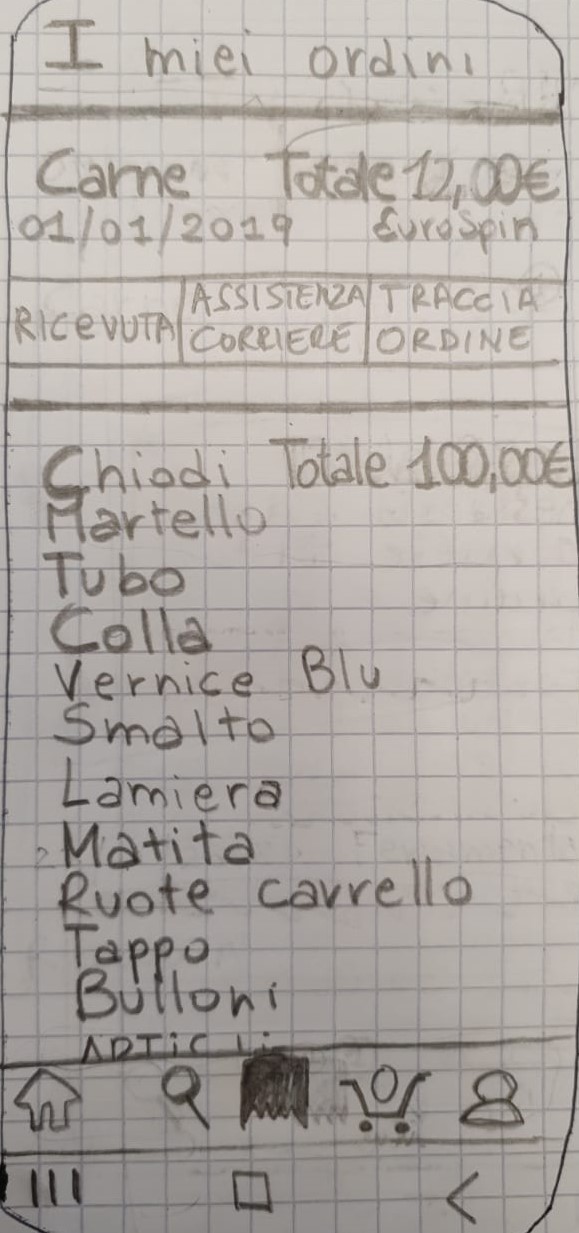 I miei ordini
Carne Totale 12,00€
01/01/2019 EuroSpin
RICEVUTA ASSISTENZA CORRIERE TRACCIA ORDINE
Chiodi Totale 100,00€
Martello
Tubo
Colla
Vernice Blu
Smalto
Lamiera
Matita
Ruote carrello
Tappo
Bulloni